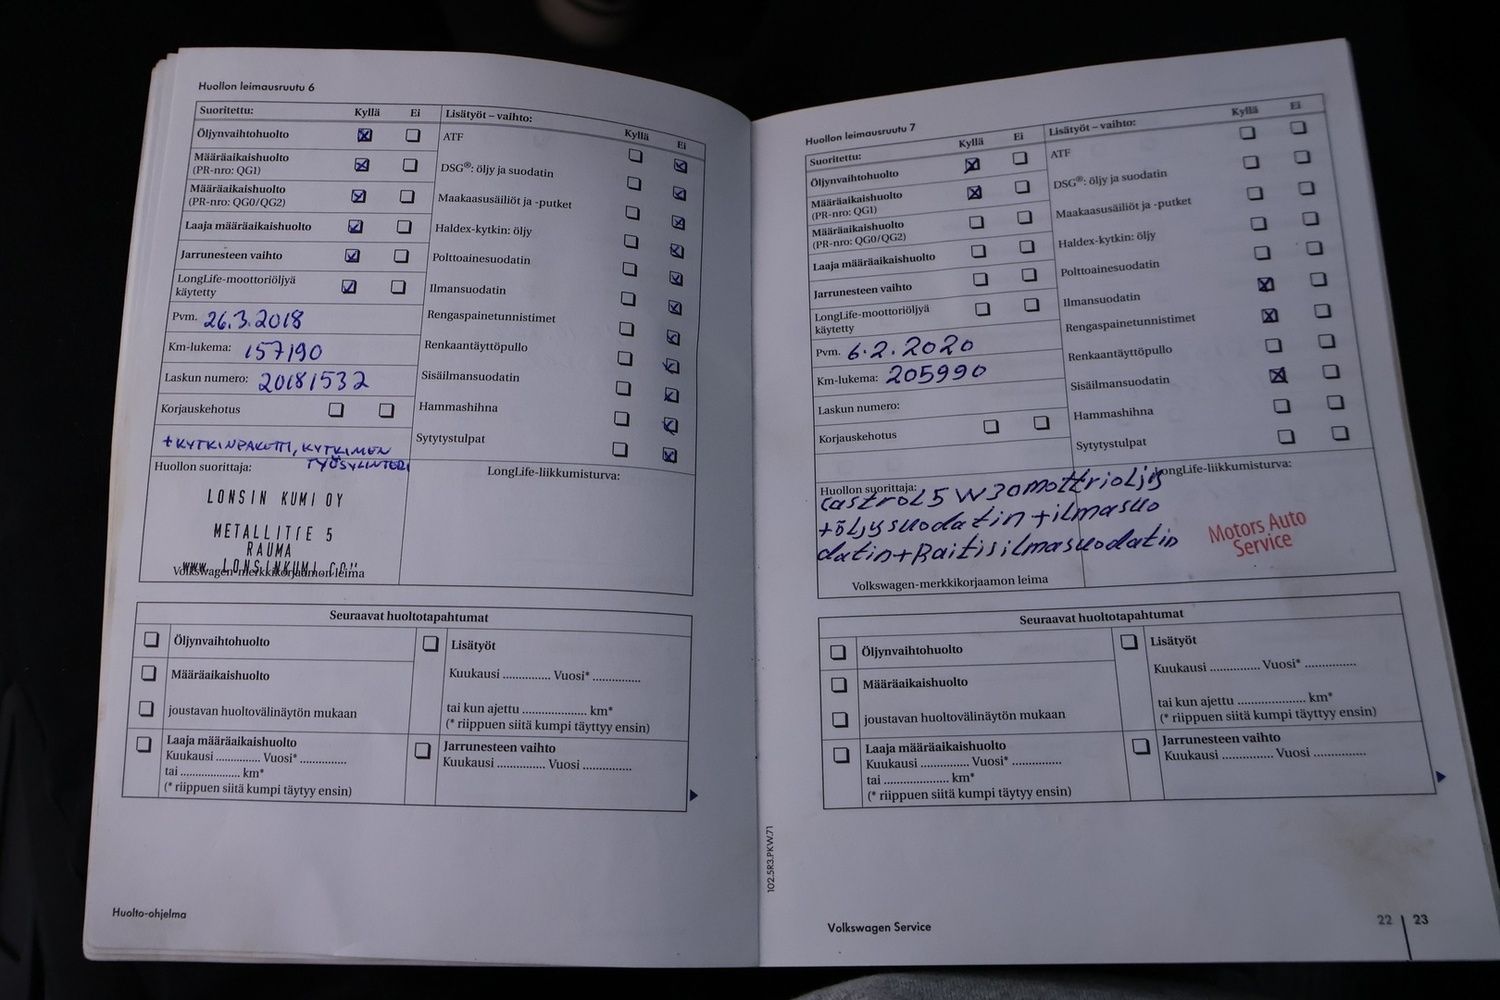 Huollon leimausruutu 6
Suoritettu: Kyllä Ei
Öljynvaihtohuolto
Määräaikaishuolto
(PR-nro: QG1)
Määräaikaishuolto
(PR-nro: QG0/QG2)
Laaja määräaikaishuolto
Jarrunesteen vaihto
LongLife-moottoriöljyä
käytetty
Pvm. 26.3.2018
Km-lukema: 157190
Laskun numero: 20181532
Korjauskehotus
+KYTKINPAKETTI, KYTKIMEN
TYÖSYLINTERI
Huollon suorittaja:
LONSIN KUMI OY
METALLITIE 5
RAUMA
WWW.LONSINKUMI.COM
Volkswagen-merkkikorjaamon leima
Lisätyöt – vaihto: Kyllä Ei
ATF
DSG®: öljy ja suodatin
Maakaasusäiliöt ja -putket
Haldex-kytkin: öljy
Polttoainesuodatin
Ilmansuodatin
Rengaspainetunnistimet
Renkaantäyttöpullo
Sisäilmansuodatin
Hammashihna
Sytytystulpat
LongLife-liikkumisturva:
Seuraavat huoltotapahtumat
Öljynvaihtohuolto
Määräaikaishuolto
joustavan huoltovälinäytön mukaan
Laaja määräaikaishuolto
Kuukausi ............... Vuosi* ...............
tai .................... km*
(* riippuen siitä kumpi täytyy ensin)
Lisätyöt
Kuukausi ............... Vuosi* ...............
tai kun ajettu .................... km*
(* riippuen siitä kumpi täyttyy ensin)
Jarrunesteen vaihto
Kuukausi ............... Vuosi ...............
Huolto-ohjelma
102.5R3.PKW.71
Huollon leimausruutu 7
Suoritettu: Kyllä Ei
Öljynvaihtohuolto
Määräaikaishuolto
(PR-nro: QG1)
Määräaikaishuolto
(PR-nro: QG0/QG2)
Laaja määräaikaishuolto
Jarrunesteen vaihto
LongLife-moottoriöljyä
käytetty
Pvm. 6.2.2020
Km-lukema: 205990
Laskun numero:
Korjauskehotus
Huollon suorittaja:
castrol 5W30 mottrioljy
+öljysuodatin +ilmasuo
datin+Raitisilmasuodatin
Volkswagen-merkkikorjaamon leima
Lisätyöt – vaihto: Kyllä Ei
ATF
DSG®: öljy ja suodatin
Maakaasusäiliöt ja -putket
Haldex-kytkin: öljy
Polttoainesuodatin
Ilmansuodatin
Rengaspainetunnistimet
Renkaantäyttöpullo
Sisäilmansuodatin
Hammashihna
Sytytystulpat
LongLife-liikkumisturva:
Motors Auto
Service
Seuraavat huoltotapahtumat
Öljynvaihtohuolto
Määräaikaishuolto
joustavan huoltovälinäytön mukaan
Laaja määräaikaishuolto
Kuukausi ............... Vuosi* ...............
tai .................... km*
(* riippuen siitä kumpi täytyy ensin)
Lisätyöt
Kuukausi ............... Vuosi* ...............
tai kun ajettu .................... km*
(* riippuen siitä kumpi täyttyy ensin)
Jarrunesteen vaihto
Kuukausi ............... Vuosi ...............
Volkswagen Service
22 23